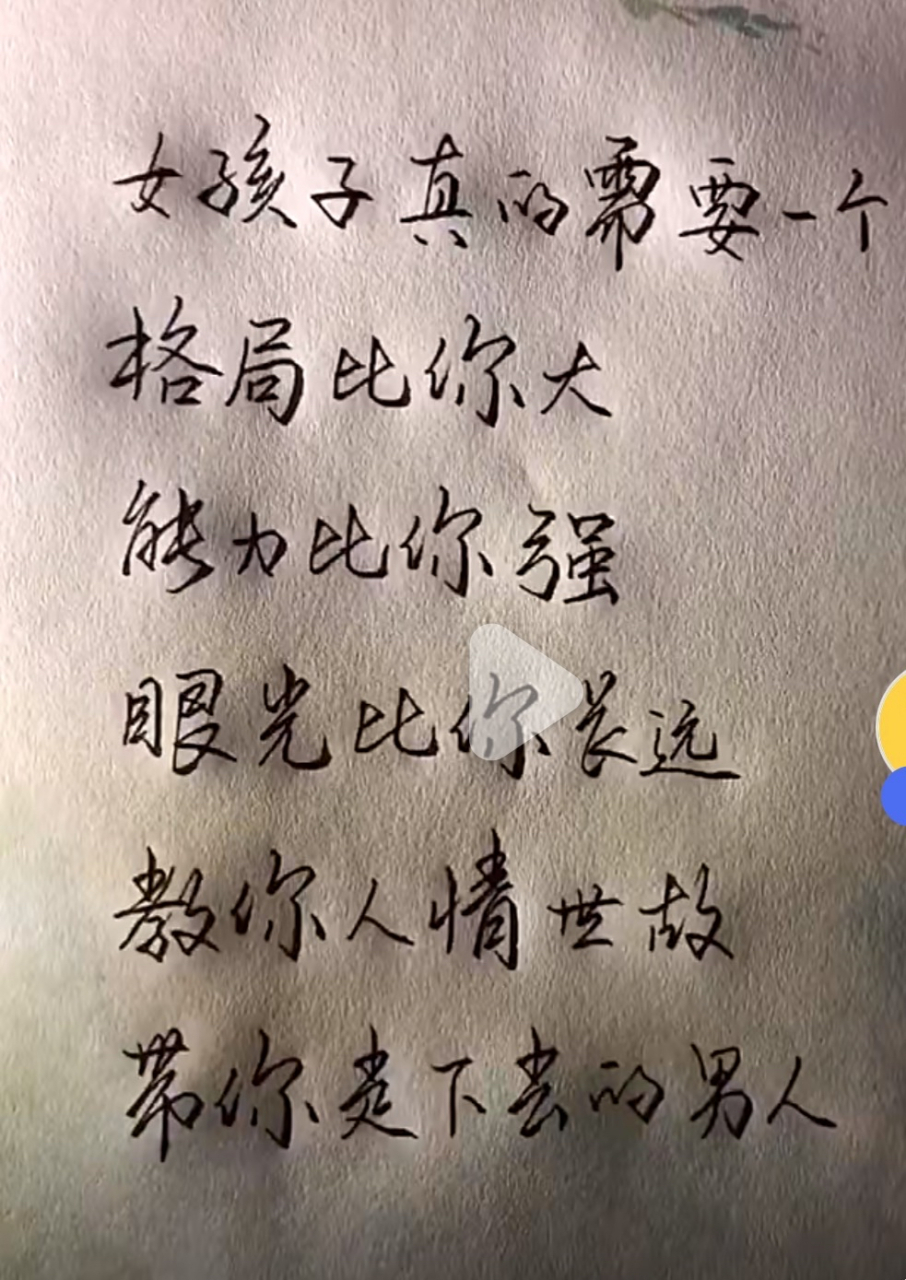 女孩子真的需要一个
格局比你大
能力比你强
眼光比你长远
教你人情世故
带你走下去的男人